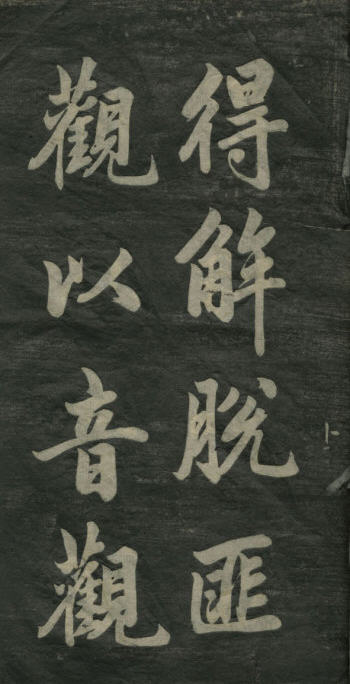 得解脫匪
觀以音觀